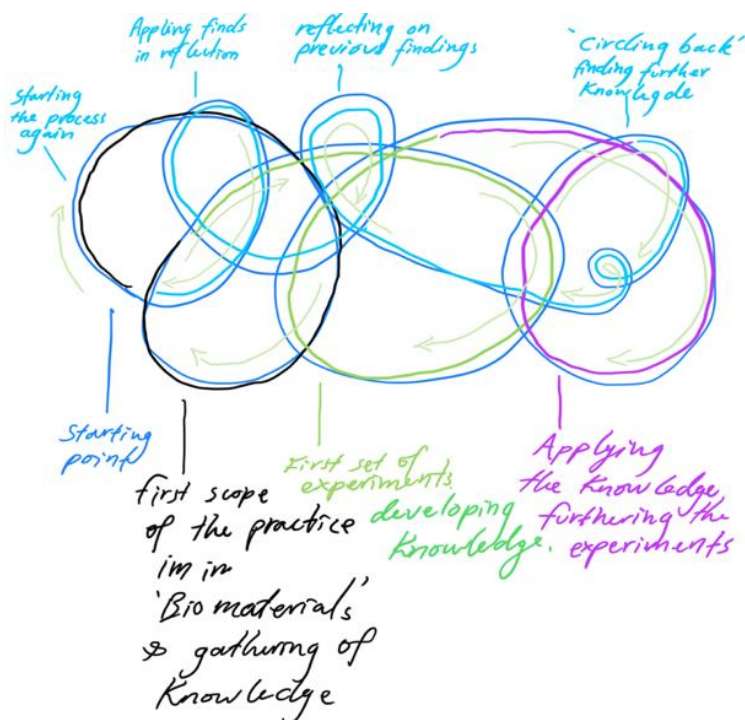 Appling finds
in reflection
reflecting on
previous findings
'Circling back'
finding further
Knowlegde
Starting
the process
again
Starting
point
first scope
of the practice
im in
'Bio materials'
& gathering of
Knowledge
First set of
experiments,
developing
Knowledge.
Applying
the Knowledge,
furthering the
experiments